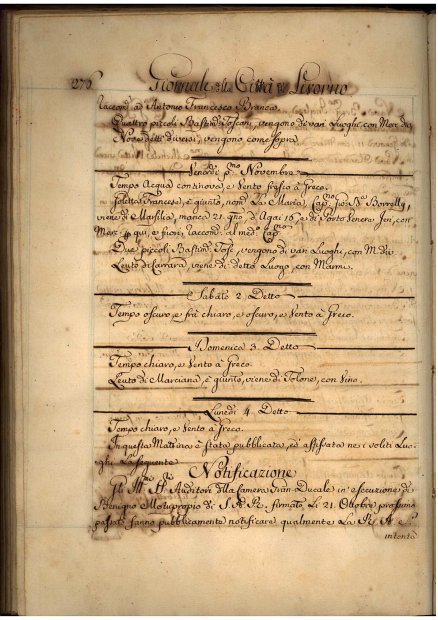 276 Giornale della Città di Livorno
Raccomd. ad Antonio Francesco Branca.
Quattro piccoli Bastim. Toscani, vengono di vari Luoghi, con Mer. div.
Nove detti diversi, vengono come sopra
Venerdì pmo. Novembre
Tempo Acqua continova, e Vento fresco a Greco.
Poletta Francese, è giunto, nomd. La Maria, Capno. Gio: Borrelly,
viene di Marsilia, manca 21. gno., d'Agai 16, e di Porto Venere Jeri, con
Merc. qui, e fuori, Raccomd. al medo. Capno.
Due piccoli Bastim. Tosc. vengono di van Luoghi, con M. div.
Leuto di Carrara, viene di detto Luogo, con Marmi.
Sabato 2. Detto
Tempo oscuro, e frà chiaro, e oscuro, e Vento à Greco.
Domenica 3. Detto
Tempo chiaro, e Vento à Greco.
Leuto di Marciana, è giunto, viene di Tolone, con Vino.
Lunedì 4. Detto
Tempo chiaro, e Vento à Greco.
In questa Mattina è stata pubblicata, ed' affissata ne i soliti Luo-
ghi La seguente
Notificazione
Gli Auditori della Camera Gran-Ducale in esecuzione di
Benigno Motuproprio di S. A. R. firmato Li 21. Ottobre prossimo
passato fanno pubblicamente notificare qualmente La R. A.
intenta